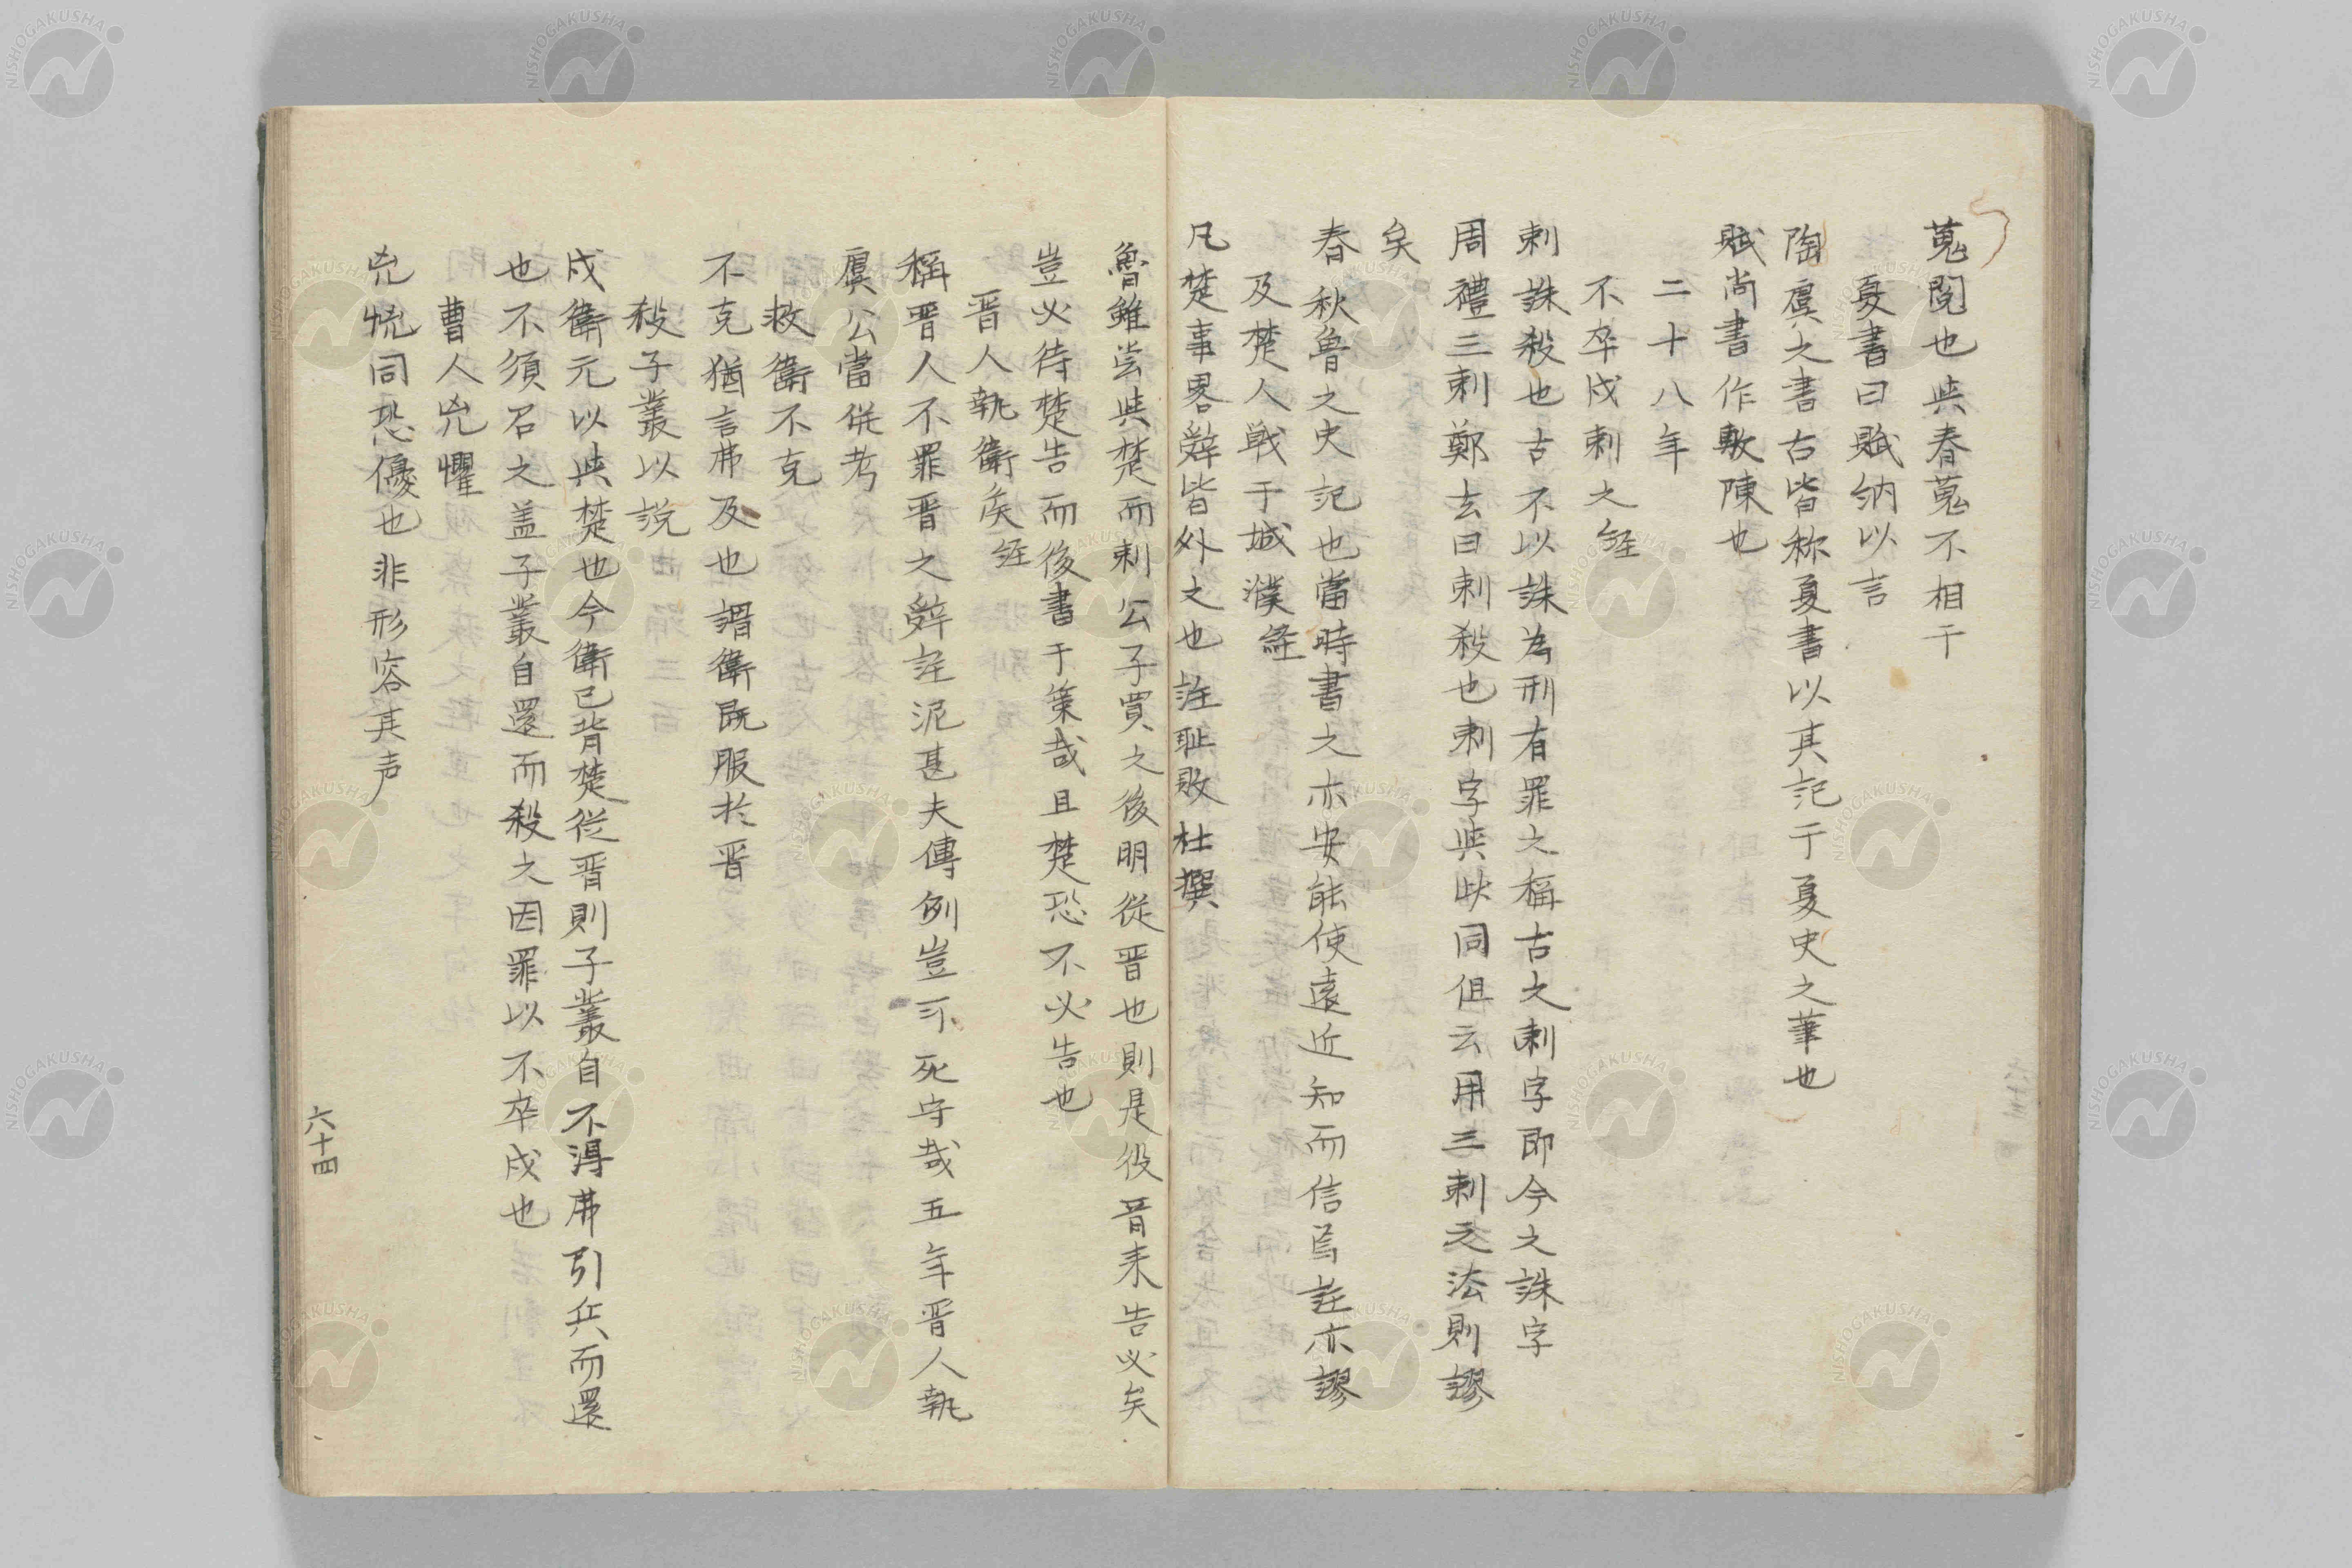 蒐閲也與春蒐不相干
夏書曰賦納以言
陶虞之書古皆称夏書以其記于夏史之筆也
賦尚書作敷陳也
二十八年
不卒戍刺之經
刺誅殺也古不以誅為刑有罪之稱古之刺字即今之誅字
周禮三刺鄭玄曰刺殺也刺字與此同但云用三刺之法則謬
矣
春秋魯之史記也當時書之亦安能使遠近知而信焉註亦謬
及楚人戦于城濮經
凡楚事畧辭皆外之也註耻敗杜撰
魯雖嘗與楚而刺公子買之後明從晋也則是役晋来告必矣
豈必待楚告而後書于策哉且楚恐不必告也
晋人執衛矦經
稱晋人不罪晋之辭註泥甚夫傳例豈可死守哉五年晋人執
虞公當併考
救衛不克
不克猶言弗及也謂衛既服於晋
殺子叢以説
戍衛元以與楚也今衛已背楚從晋則子叢自不得弗引兵而還
也不須召之盖子叢自還而殺之因罪以不卒戍也
曹人兇懼
兇恟同恐優也非形容其声
六十四
NISHOGAKUSHA